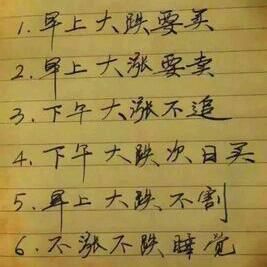 1.早上大跌要买
2.早上大涨要卖
3.下午大涨不追
4.下午大跌次日买
5.早上大跌不割
6.不涨不跌睡觉